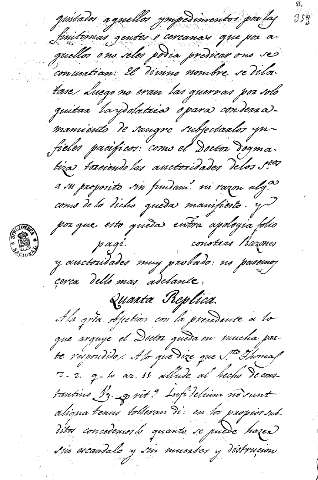 359
quitados aquellos ympedimentos por las
finitimas gentes o cercanas que por a
quellos o no seles podia predicar o no se
convertian: El divino nombre se dila
tase. Luego no eran las guerras por solo
quitar la ydolatria o para con derra
mamiento de sangre subjectarlos yn-
fieles pacificos: como el Doctor dogma
tiza torciendo las auctoridades delos S.tos
a su proposito sin fundam.to ni razon alg.a
como de lo dicho queda manifiesto. y
por que esto queda entra apologia folio
pagi. con otras Razones
y auctoridades muy probado: no paremos
cerca dello mas adelante.
Quarta Replica.
Ala objetion con la precedente a lo
que arguye el Doctor queda en mucha par-
te respondido. A lo que dize que S.to Thomas
2. 2. q. 10. ar. 11 allude al hecho de cons-
tantino rit. Infidelium no sunt
aliqua tenus tollerandi: en los propios sub-
ditos concedemoslo quando se puede hazer
sin escandalo y sin muertes y destruçion